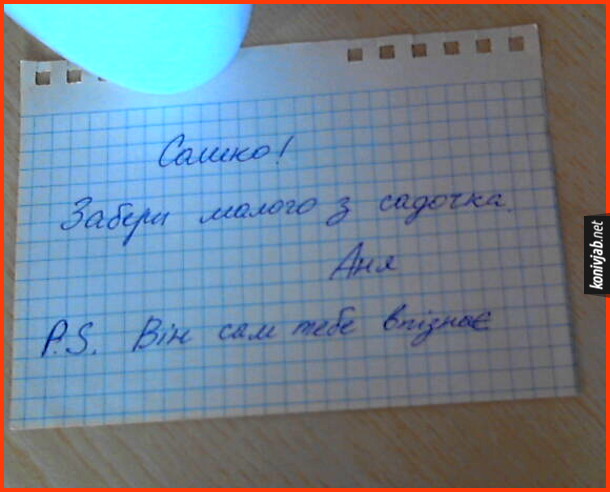 Сашко!
Забери малого з садочка.
Аня
P.S. Він сам тебе впізнає
konivjab.net